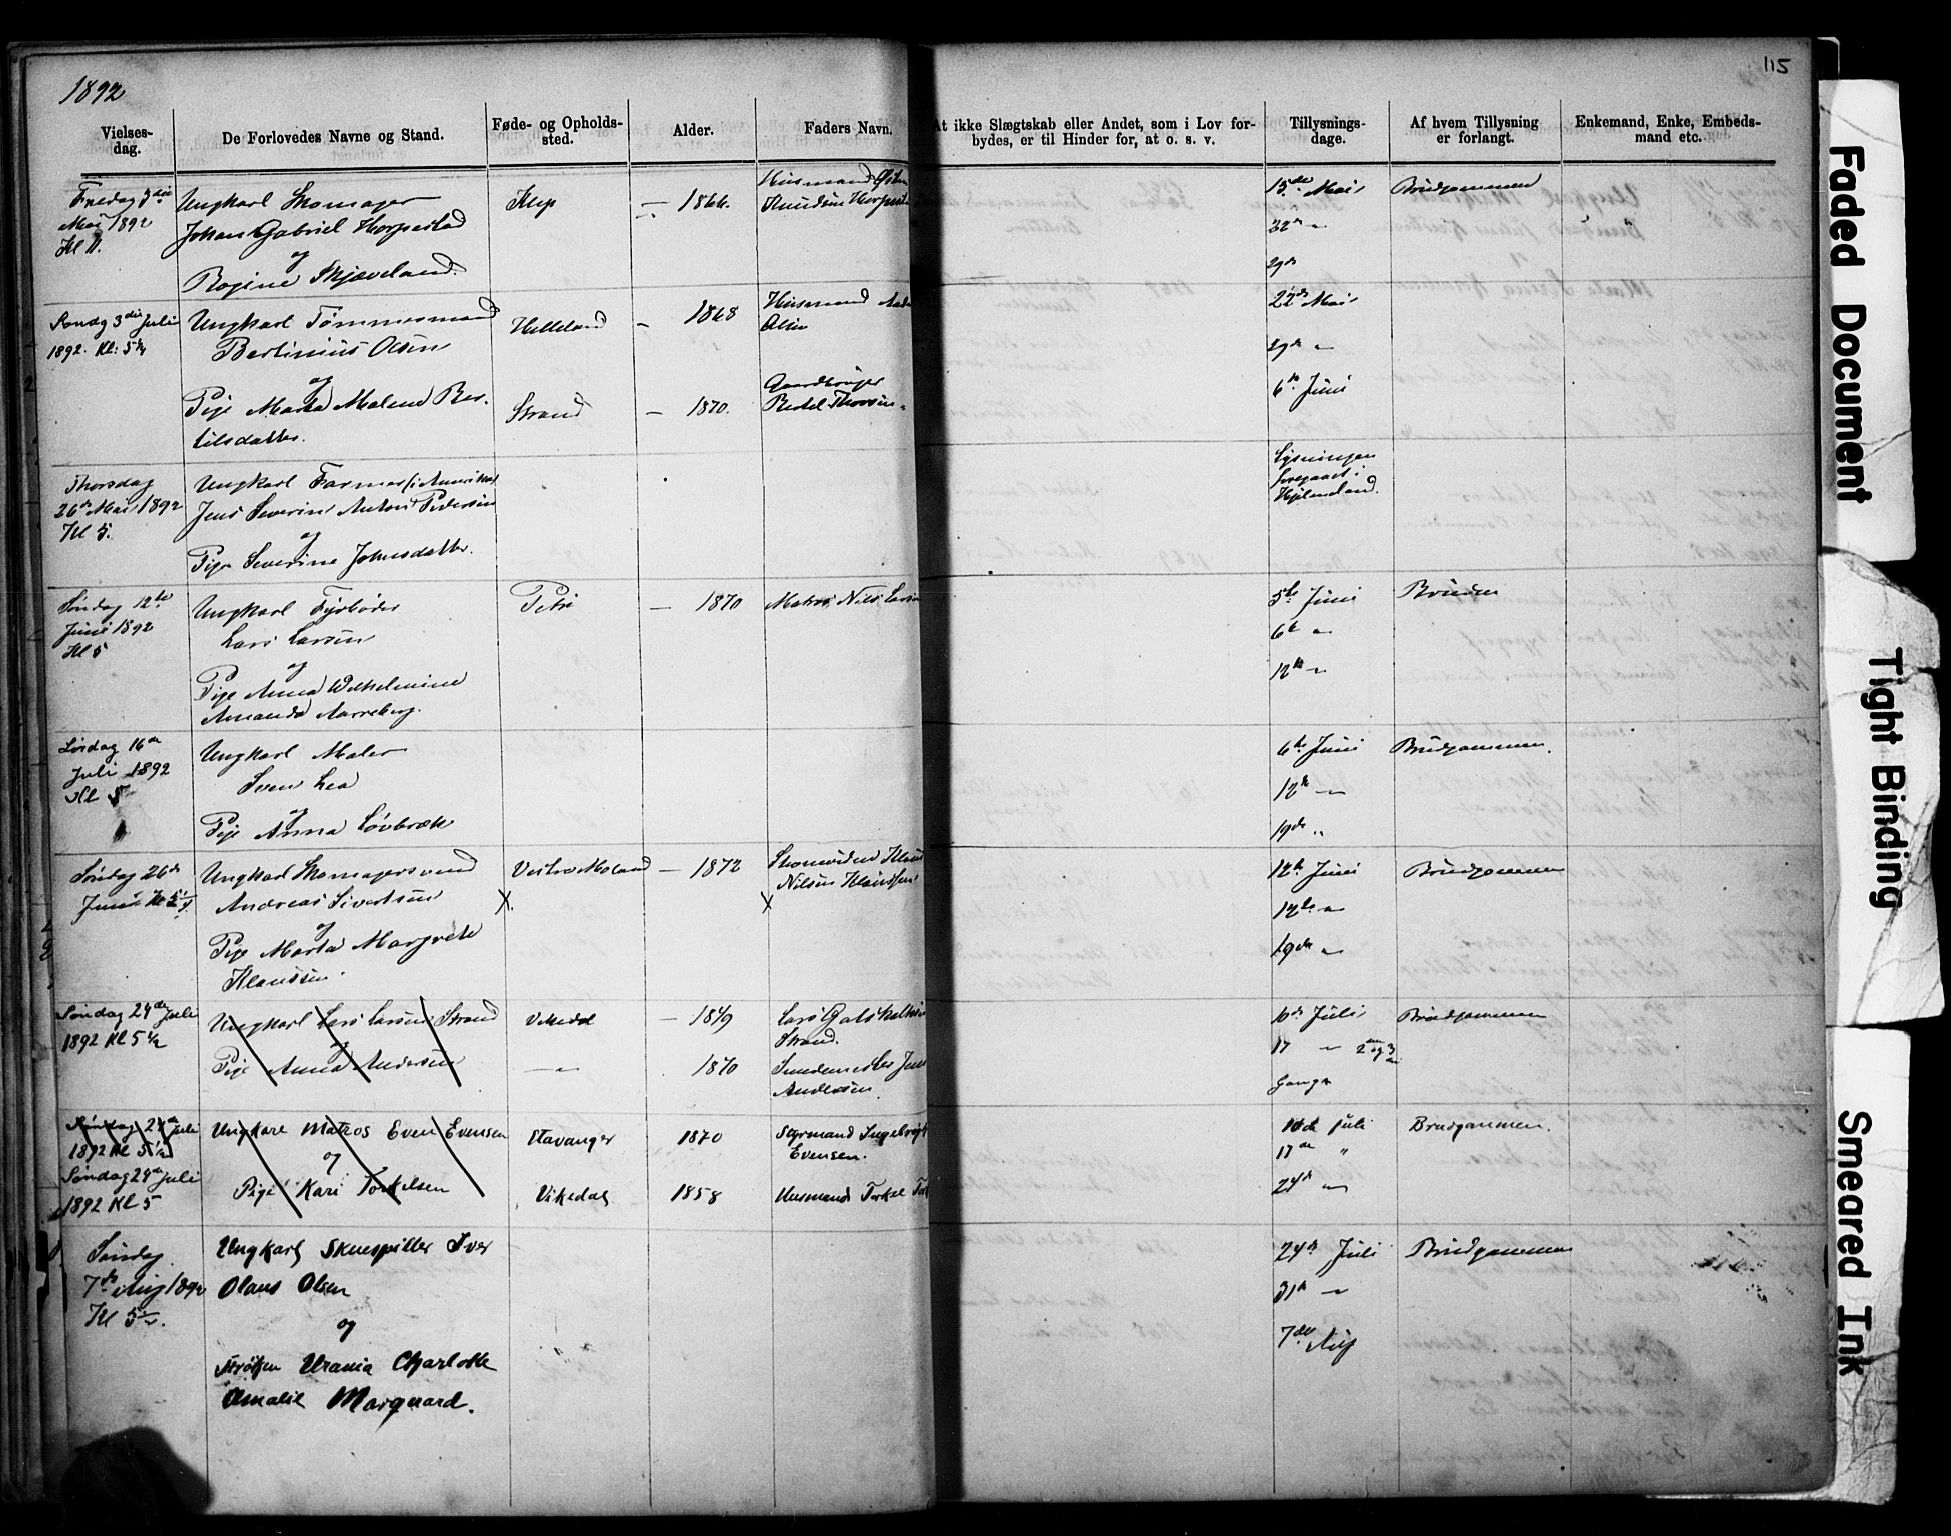 1892
115
Vielses-
dag.
De Forlovedes Navne og Stand.
Føde- og Opholds-
sted.
Alder.
Faders Navn.
At ikke Slægtskab eller Andet, som i Lov for-
bydes, er til Hinder for, at o. s. v.
Tillysnings-
dage.
Af hvem Tillysning
er forlangt.
Enkemand, Enke, Embeds-
mand etc.
Fredag
Mai 1892
Kl
Ungkarl Skomager
Johan Gabriel Horpestad
og
Rogine Skjæveland
Klep
— 1866.
Husmand
Knudsen
15de Mai
22de "
29de
Brudgommen
Søndg 3die Juli
1892. Kl. 5½
Ungkarl Tømmermand
Bertinius Olsen
og
Pige Marta Malene Ber-
tilsdatter.
Helleland
– 1868
Husmand
Olsen
Strand
— 1870.
Gaardbruger
Bertel Thorsen
22de Mai
29de "
6te Juni
Thorsdag
26de Mai 1892
Kl 5.
Ungkarl Farmer (i Amerika)
Jens Severin Anton Pedersen
og
Pige Severine Johnsdatter.
Lysningen
foregaaet i
Hjelmeland.
Søndag 12te
Juni 1892
Kl 5
Ungkarl Fyrbøder
Lars Larsen
og
Pige Anna Wilhelmine
Amanda Aarreberg.
Petri
— 1870
Matros Nils Larsen
5te Juni
6te "
12te "
Bruden
Lørdag 16de
Juli 1892
Kl 5
Ungkarl Maler
Sven Lea
og
Pige Anna Løvbræk
6te Juni
12te "
19de "
Brudgommen.
Søndag 26de
Juni Kl 5½
Ungkarl Skomagersvend
Andreas Sivertsen
og
Pige Marta Margrete
Klaussen.
Vestre Moland
X.
— 1872
X
Nilsen Klaussen
12te Juni
12te "
19de "
Brudgommen
Søndag 24de Juli
1892 Kl 5½
Ungkarl Lars Larsen Strand
og
Pige Anna Andersen
Vikedal
— 1869
Lars
Strand.
— " —
1870
Smedemester
Andersen.
10de Juli
17 " 2den og 3die
Gang
Brudgommen
Søndag 24de Juli
1892 Kl 5½
Søndag 24de Juli
1892 Kl 5
Ungkarl Matros Even Evensen
og
Pige Kari Torkelsen
Stavanger
1870
Styrmand Ingebrigt
Evensen.
Vikedal
1858
Husmand Torkel
10de Juli
17de "
24de "
Brudgommen.
Søndag
7de Aug 1892
Kl 5½.
Ungkarl Skuespiller Iver
Olaus Olsen
og
Frøken Urania Charlotte
Amalie Marquard.
24de Juli
31te "
7de Aug
Brudgommen
Faded Document
Tight Binding
Smeared Ink